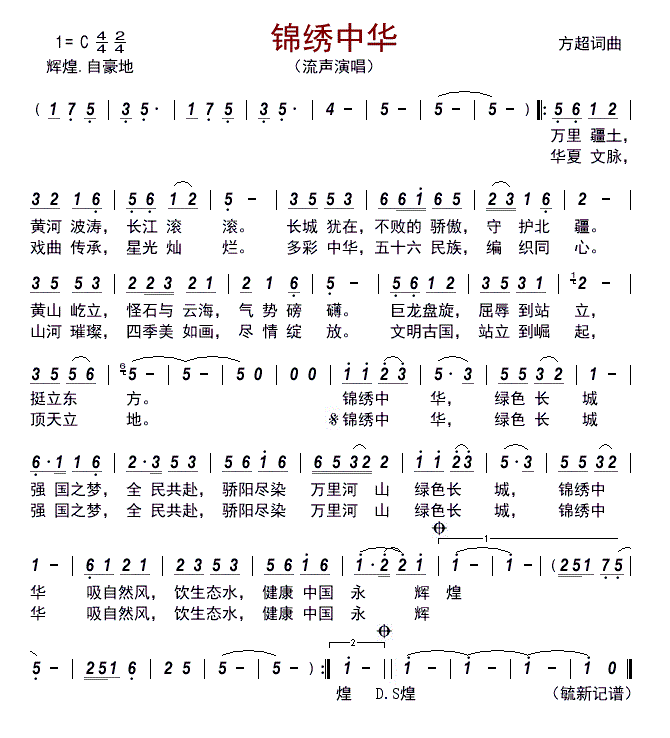 锦绣中华
1= C 4/4 2/4
方超词曲
辉煌.自豪地
（流声演唱）
( 1 7 5 | 3 5· | 1 7 5 | 3 5· | 4 - | 5 - | 5 - | 5 - ) ‖: 5 6 1 2 |
万里 疆土，
华夏 文脉，
3 2 1 6 | 5 6 1 2 | 5 - | 3 5 5 3 | 6 6 1 6 5 | 2 3 1 6 | 2 - |
黄河 波涛， 长江 滚 滚。 长城 犹在，不败的 骄傲， 守 护北 疆。
戏曲 传承， 星光 灿 烂。 多彩 中华，五十六 民族， 编 织同 心。
3 5 5 3 | 2 2 3 2 1 | 2 1 6 1 | 5 - | 5 6 1 2 | 3 5 3 1 | 2 - |
黄山 屹立， 怪石与 云海， 气 势 磅 礴。 巨龙盘旋， 屈辱 到站 立，
山河 璀璨， 四季美 如画， 尽 情 绽 放。 文明古国， 站立 到崛 起，
3 5 5 6 | 5 - | 5 - | 5 0 | 0 0 | 1 1 2 3 | 5· 3 | 5 5 3 2 | 1 - |
挺立东 方。 锦绣中 华， 绿色 长 城
顶天立 地。 𝄋锦绣中 华， 绿色 长 城
6· 1 2 1 | 2· 3 5 3 | 5 6 1 6 | 6 5 3 2 | 2 - | 1 1 2 3 | 5· 3 | 5 5 3 2 |
强 国之梦， 全 民共赴， 骄阳尽染 万里河 山 绿色长 城， 锦绣中
强 国之梦， 全 民共赴， 骄阳尽染 万里河 山 绿色长 城， 锦绣中
1
1 - | 6 1 2 1 | 2 3 5 3 | 5 6 1 6 | 1· 2 2 1 | 1 - | 1 - | ( 2 5 1 7 5 |
华 吸自然风， 饮生态水， 健康 中国 永 辉 煌
华 吸自然风， 饮生态水， 健康 中国 永 辉
2
5 - | 2 5 1 6 | 2 5 | 5 - ) :‖ 1 - ‖ 1 - | 1 - | 1 0 ‖
煌 D.S煌 （毓新记谱）